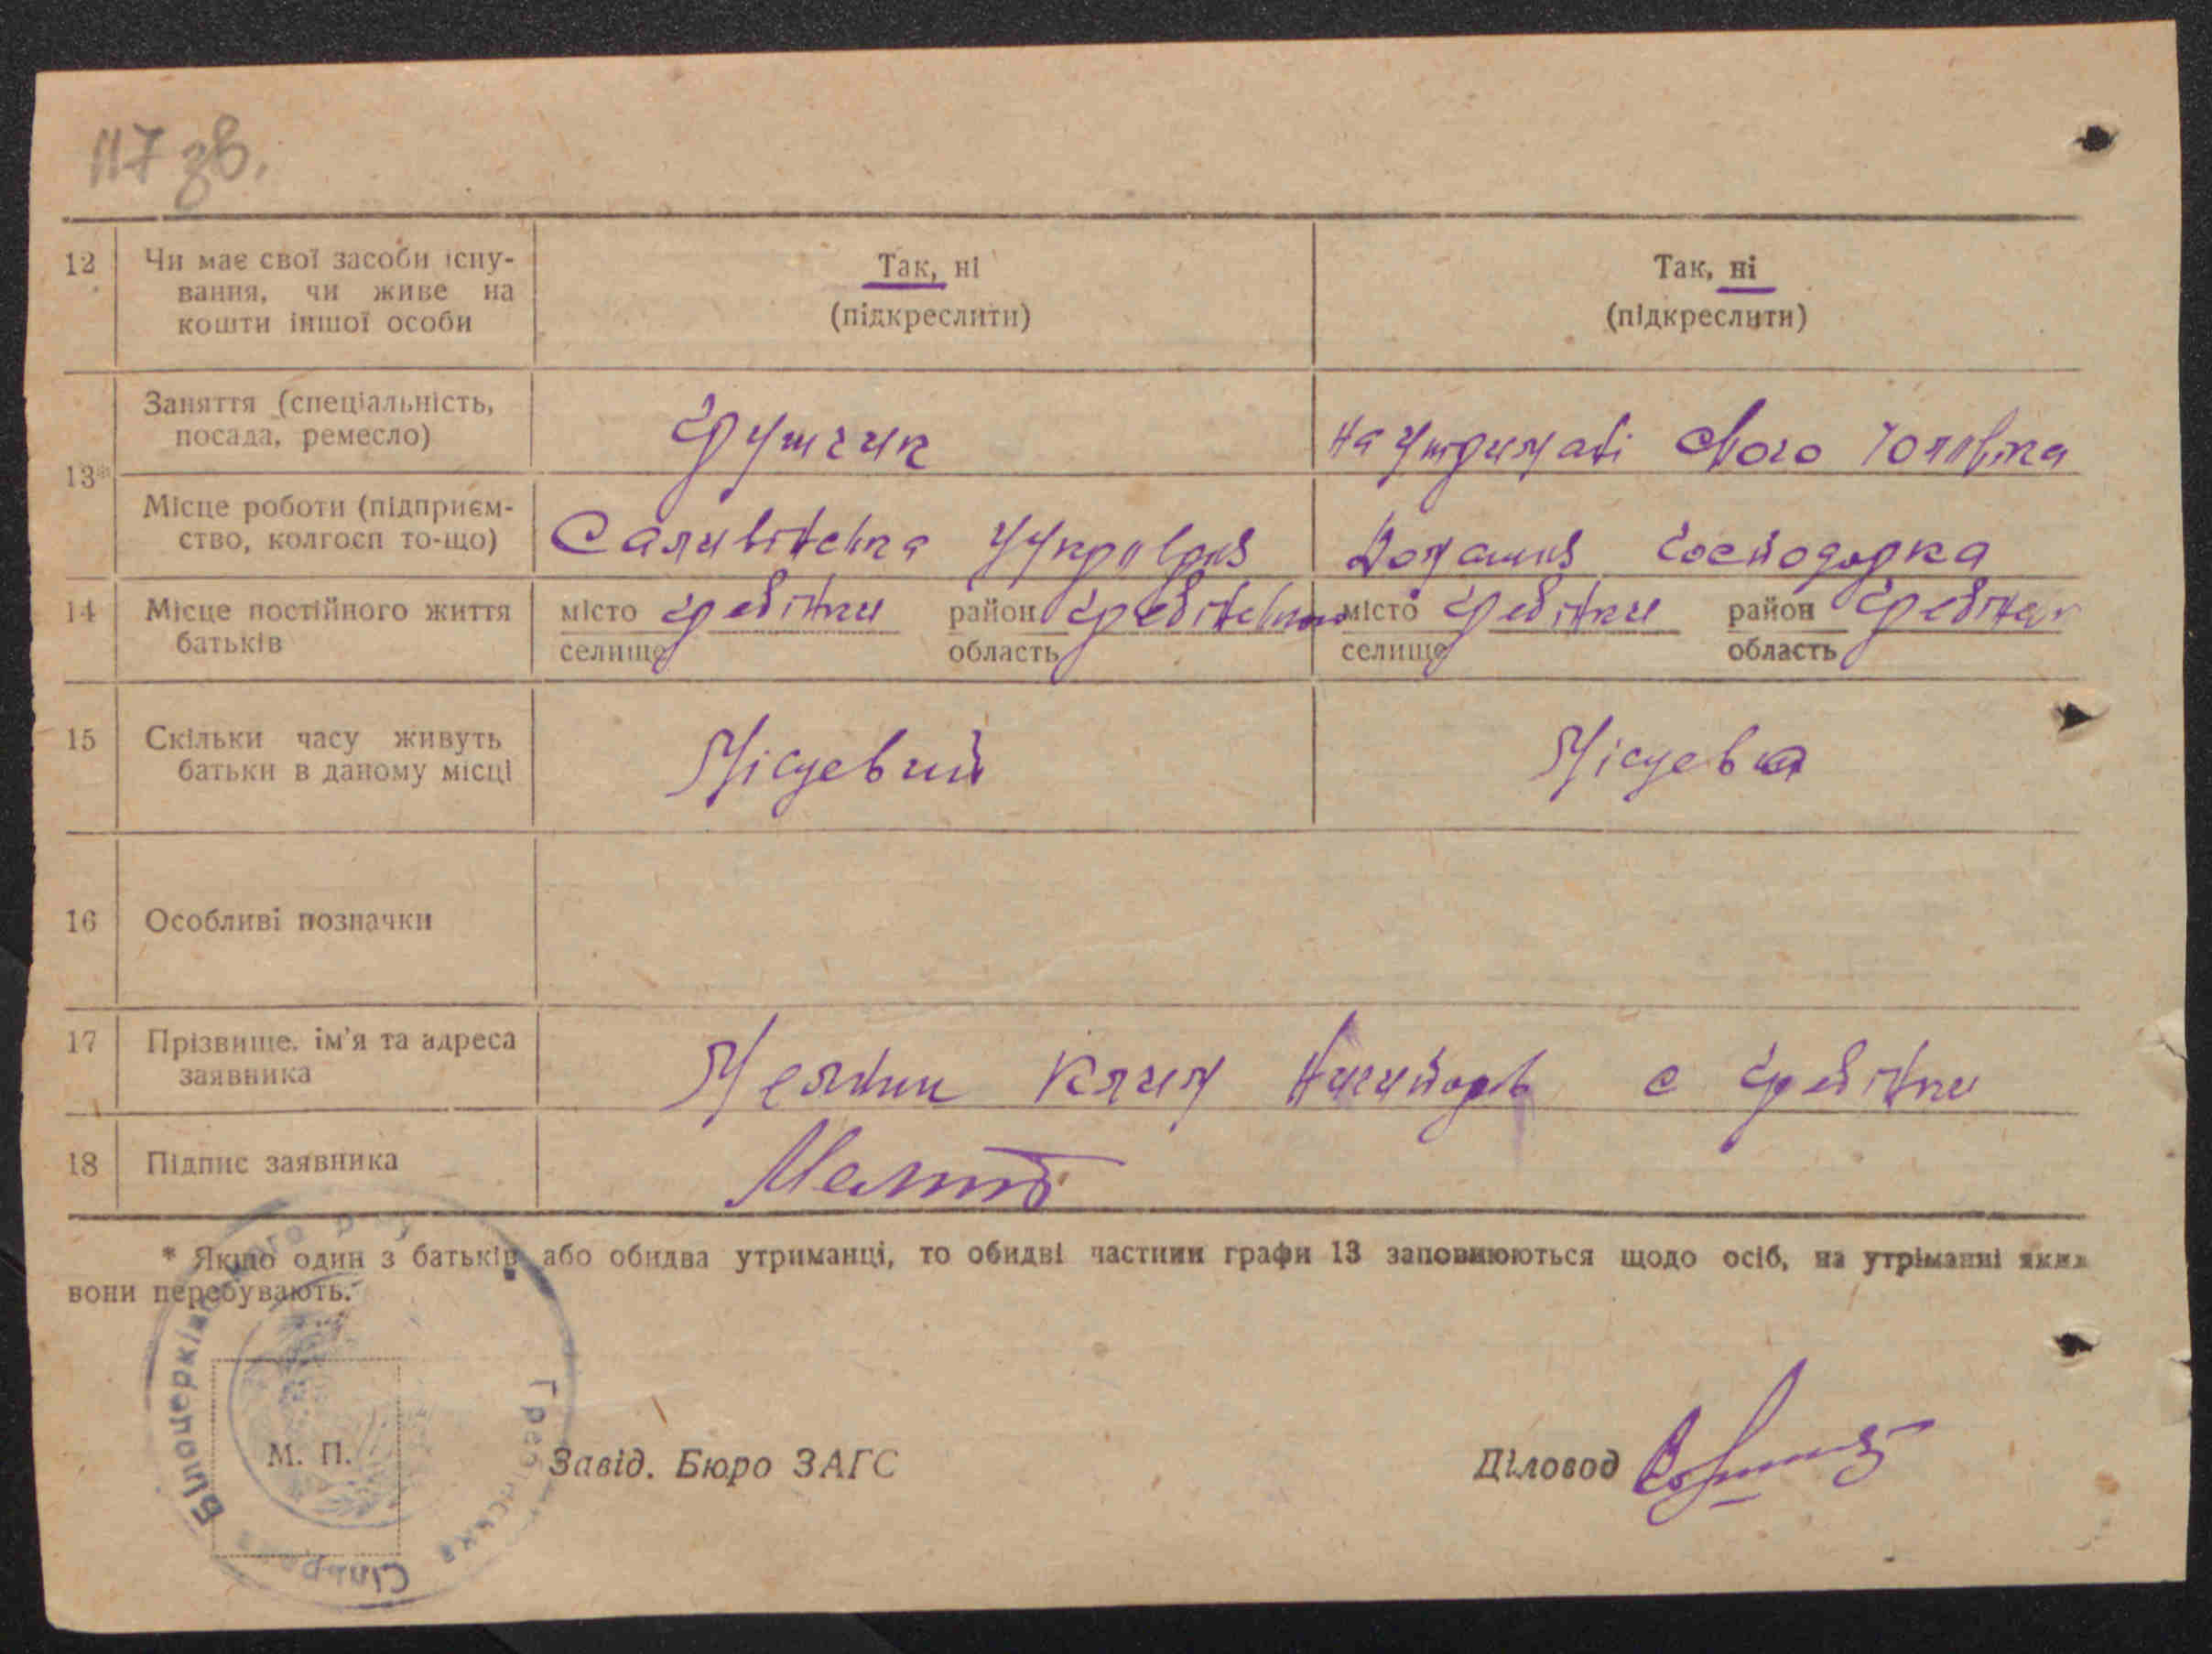 117 зв.
12 Чи має свої засоби існу-
вання, чи живе на
кошти іншої особи
Так, ні
(підкреслити)
Так, ні
(підкреслити)
13*
Заняття (спеціальність,
посада, ремесло)
Грущик
На утримані свого чоловіка
Місце роботи (підприєм-
ство, колгосп то-що)
Саливінська цукроварня
Домашня господарка
14 Місце постійного життя
батьків
місто Гребінки район Гребінський
селище область
місто Гребінки район Гребінськ
селище область
15 Скільки часу живуть
батьки в даному місці
Місцевий
Місцева
16 Особливі позначки
17 Прізвище, ім'я та адреса
заявника
Клим с Гребінки
18 Підпис заявника
* Якщо один з батьків або обидва утриманці, то обидві частини графи 13 заповнюються щодо осіб, на утріманні яких
вони перебувають.
Білоцерківського р-ну
Гребінська
Сільрада
М. П.
Завід. Бюро ЗАГС
Діловод